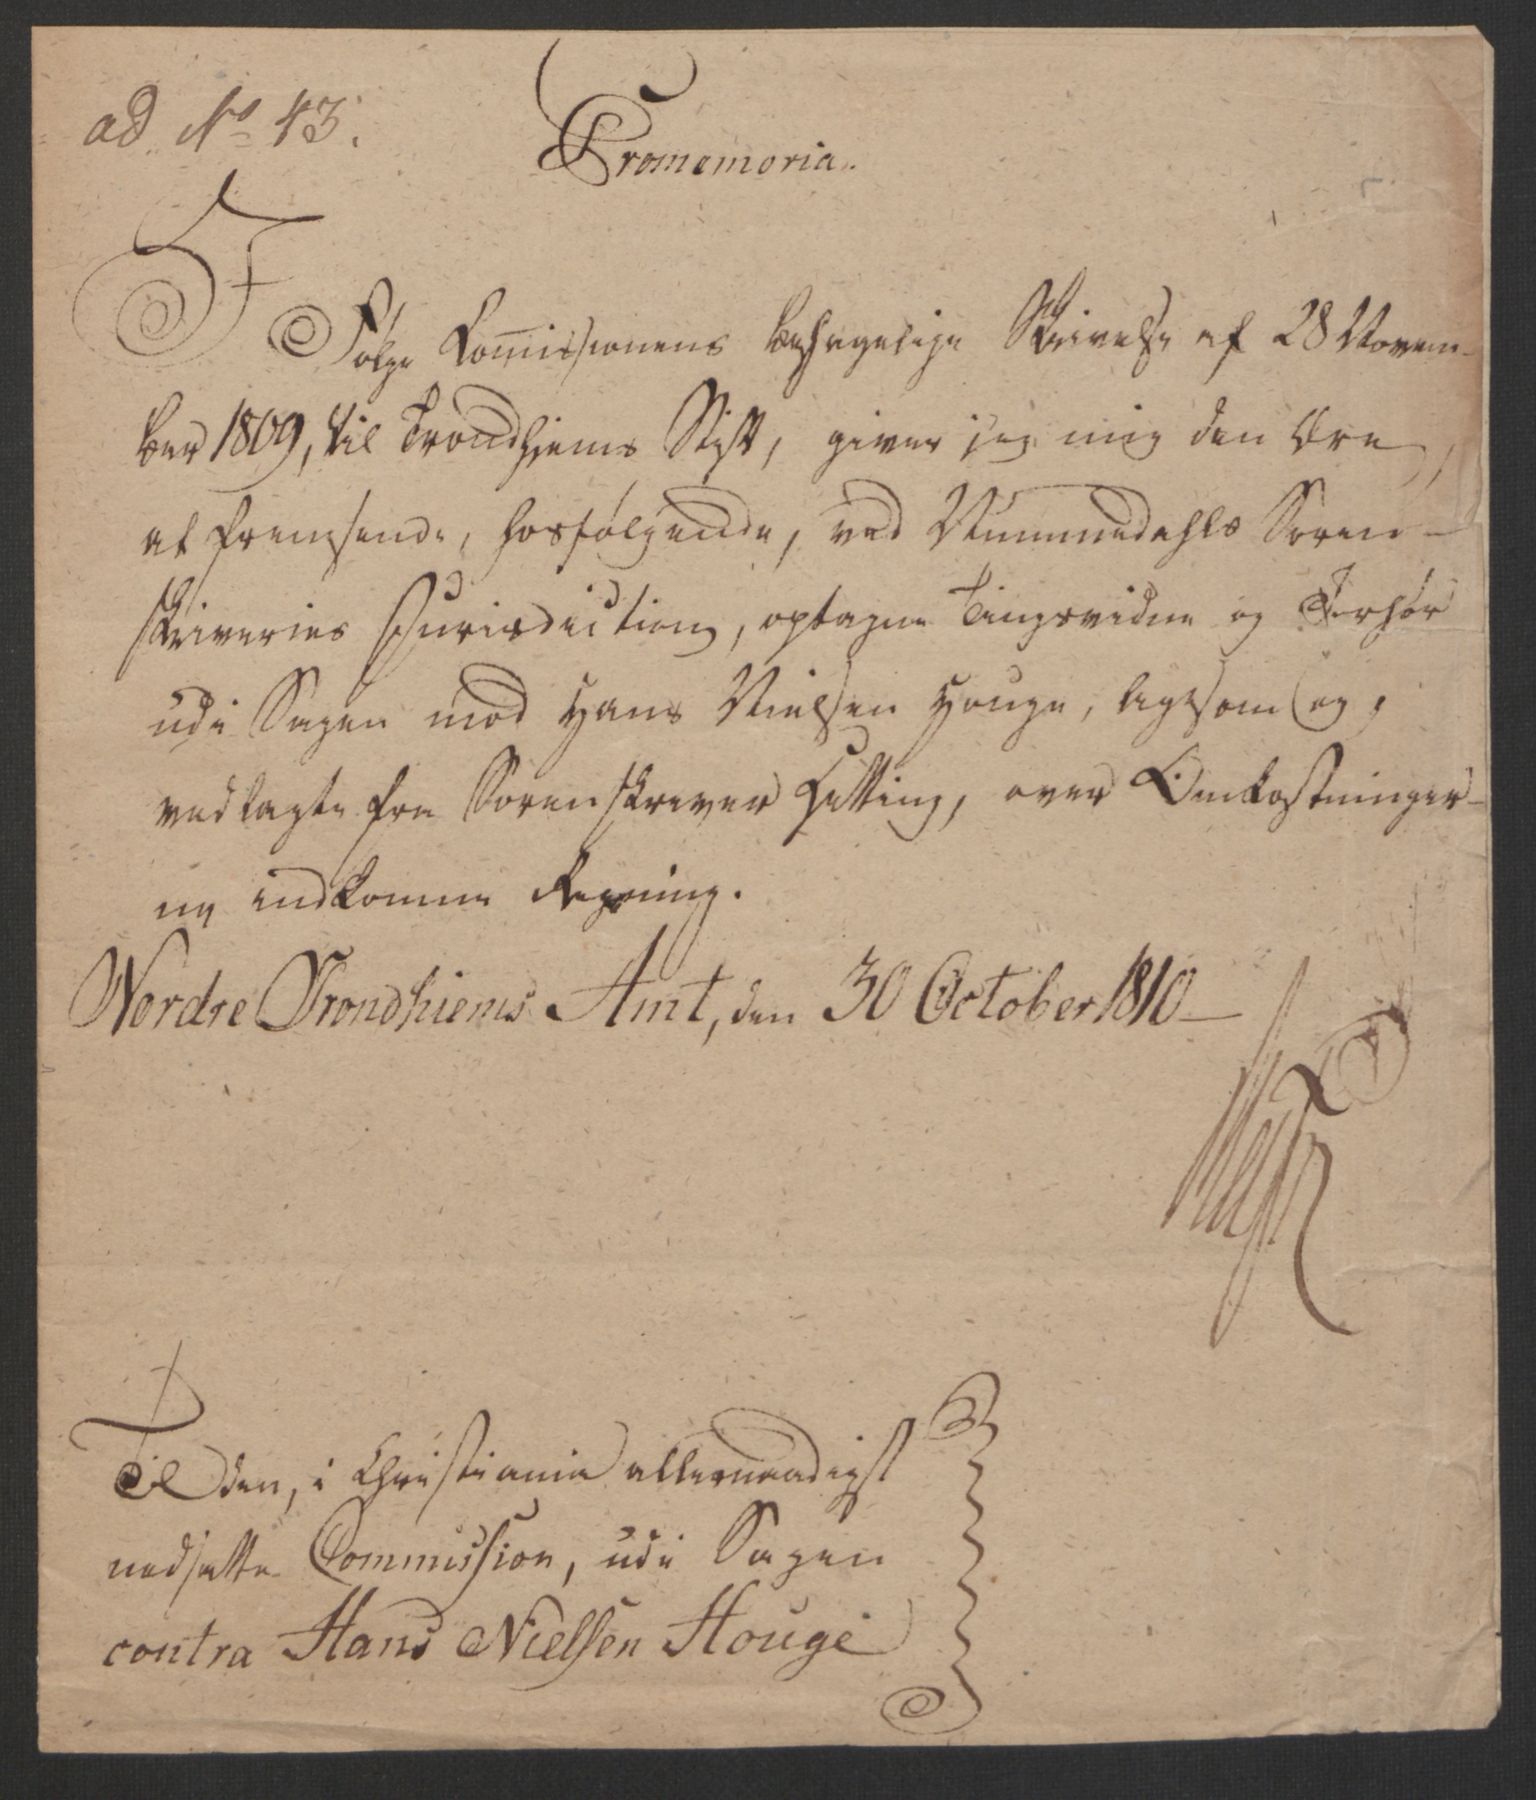 ad No 43.
Promemoria.
I Følge Commissionens behagelige Skrivelse af 28 Novem-
ber 1809, til Trondhjems Stift, giver jeg mig den Ære,
at fremsende, hosfølgende, ved Nummedahls Soren-
skriveries Jurisdiction, optagne Tingsvidne og Forhør
udi Sagen mod Hans Nielsen Houge, ligesom og,
vedlagte fra Sorenskriver Hetting, over Omkostninger-
ne indkomne Regning.
Nordre Trondhiems Amt, den 30 October 1810
Til den, i Christiania allernaadigst
nedsatte Commission, udi Sagen
contra Hans Nielsen Houge